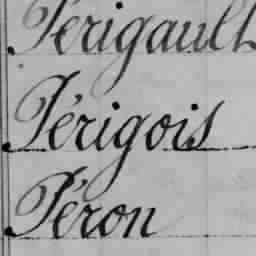 Périgault
Périgois
Péron